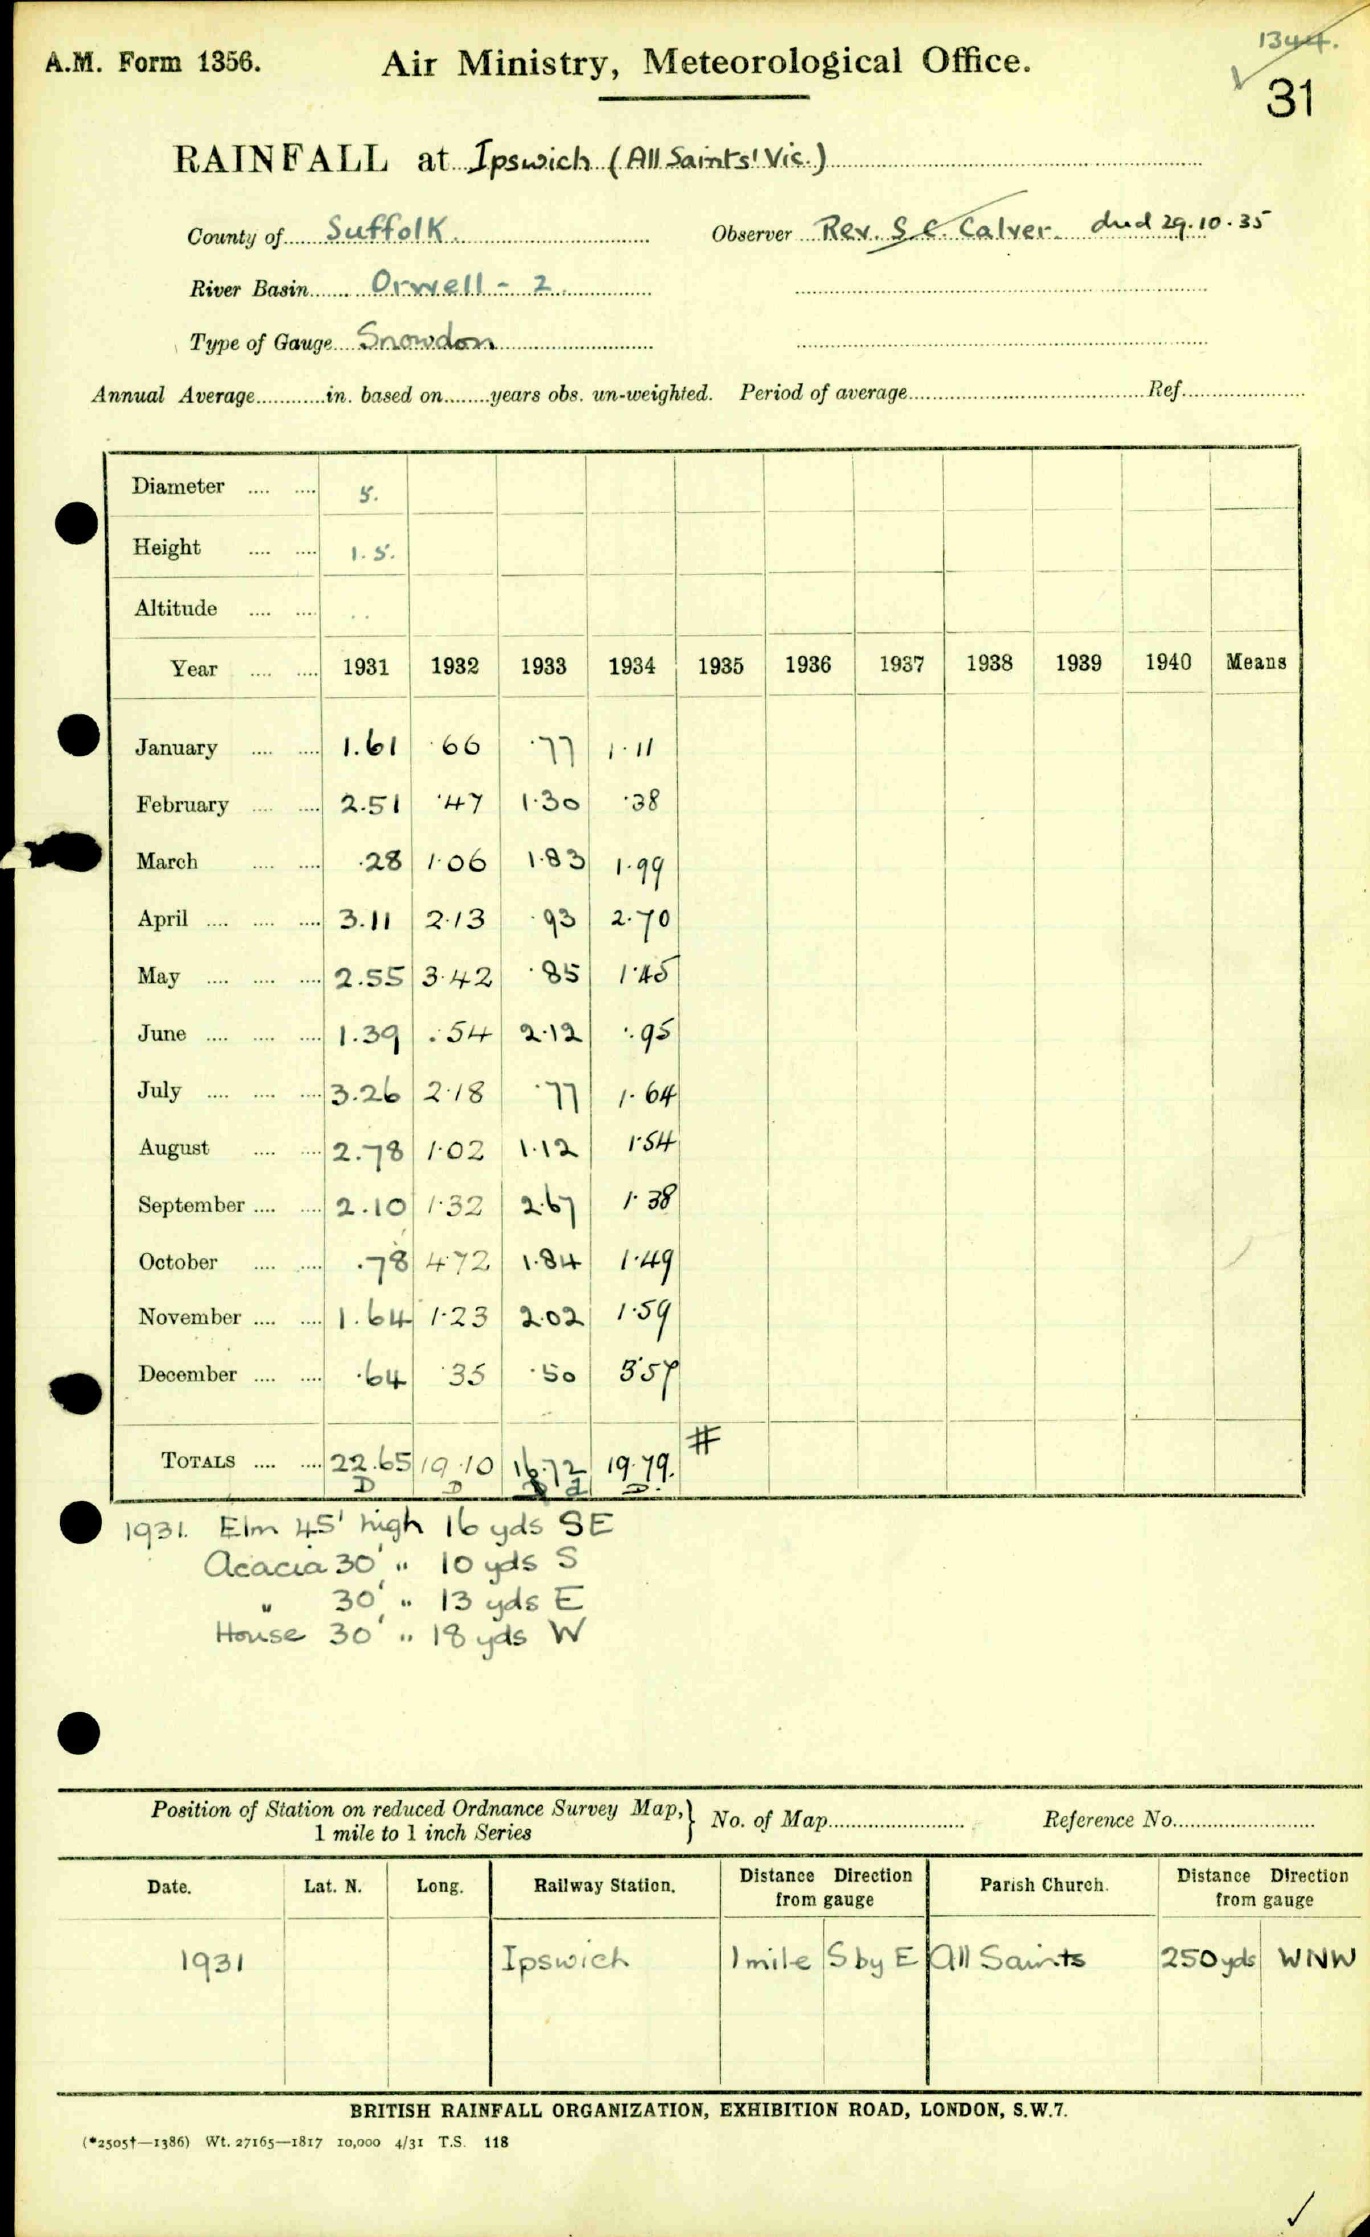 1344.
A.M. Form 1356. Air Ministry, Meteorological Office.
31
RAINFALL at Ipswich (All Saints' Vic.)
County of Suffolk. Observer Rev. S. C. Calver. died 29.10.35
River Basin Orwell - 2.
Type of Gauge Snowdon
Annual Average............in. based on........years obs. un-weighted. Period of average............Ref............
Diameter .... .... 5.
Height .... .... 1.5.
Altitude .... .... ..
Year .... .... 1931 1932 1933 1934 1935 1936 1937 1938 1939 1940 Means
January .... .... 1.61 ·66 ·77 1·11
February .... .... 2.51 ·47 1·30 ·38
March .... .... ·28 1·06 1·83 1·99
April .... .... .... 3.11 2·13 ·93 2·70
May .... .... .... 2.55 3·42 ·85 1·45
June .... .... .... 1.39 .54 2·12 ·95
July .... .... .... 3.26 2·18 ·77 1·64
August .... .... 2.78 1·02 1·12 1·54
September .... .... 2.10 1·32 2·67 1·38
October .... .... .78 4·72 1·84 1·49
November .... .... 1.64 1·23 2·02 1·59
December .... .... ·64 ·35 ·50 3·57
TOTALS .... .... 22.65 19·10 16·72 19·79. #
D D d D.
1931. Elm 45' high 16 yds SE
Acacia 30' " 10 yds S
" 30' " 13 yds E
House 30' " 18 yds W
Position of Station on reduced Ordnance Survey Map,} No. of Map............ Reference No............
1 mile to 1 inch Series
Date. Lat. N. Long. Railway Station. Distance Direction from gauge Parish Church. Distance Direction from gauge
1931 Ipswich 1 mile S by E All Saints 250 yds WNW
BRITISH RAINFALL ORGANIZATION, EXHIBITION ROAD, LONDON, S.W.7.
(*2505†—1386) Wt. 27165—1817 10,000 4/31 T.S. 118